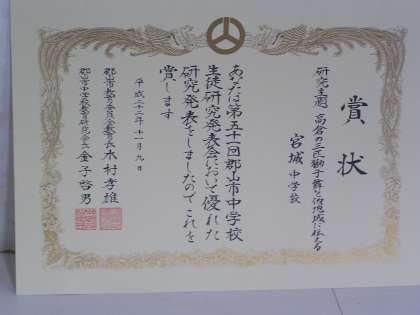 賞状
研究主題 高倉の三匹獅子舞と他地域に伝える
宮城中学校
あなたは第五十一回郡山市中学校
生徒研究発表会において優れた
研究発表をしましたのでこれを
賞します
平成二十二年十一月九日
郡山市教育委員会教育長 木村孝雄
郡山市中学校教育研究会長 金子啓男